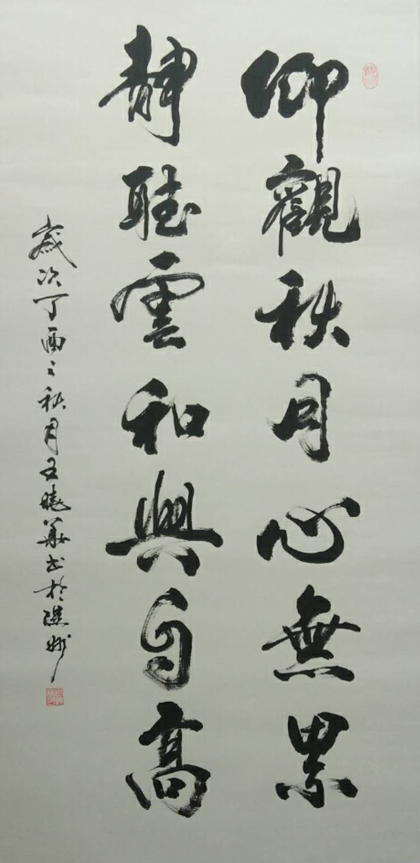 仰觀秋月心無累
靜聽雲和興自高
歲次丁酉之秋月王曉華書於